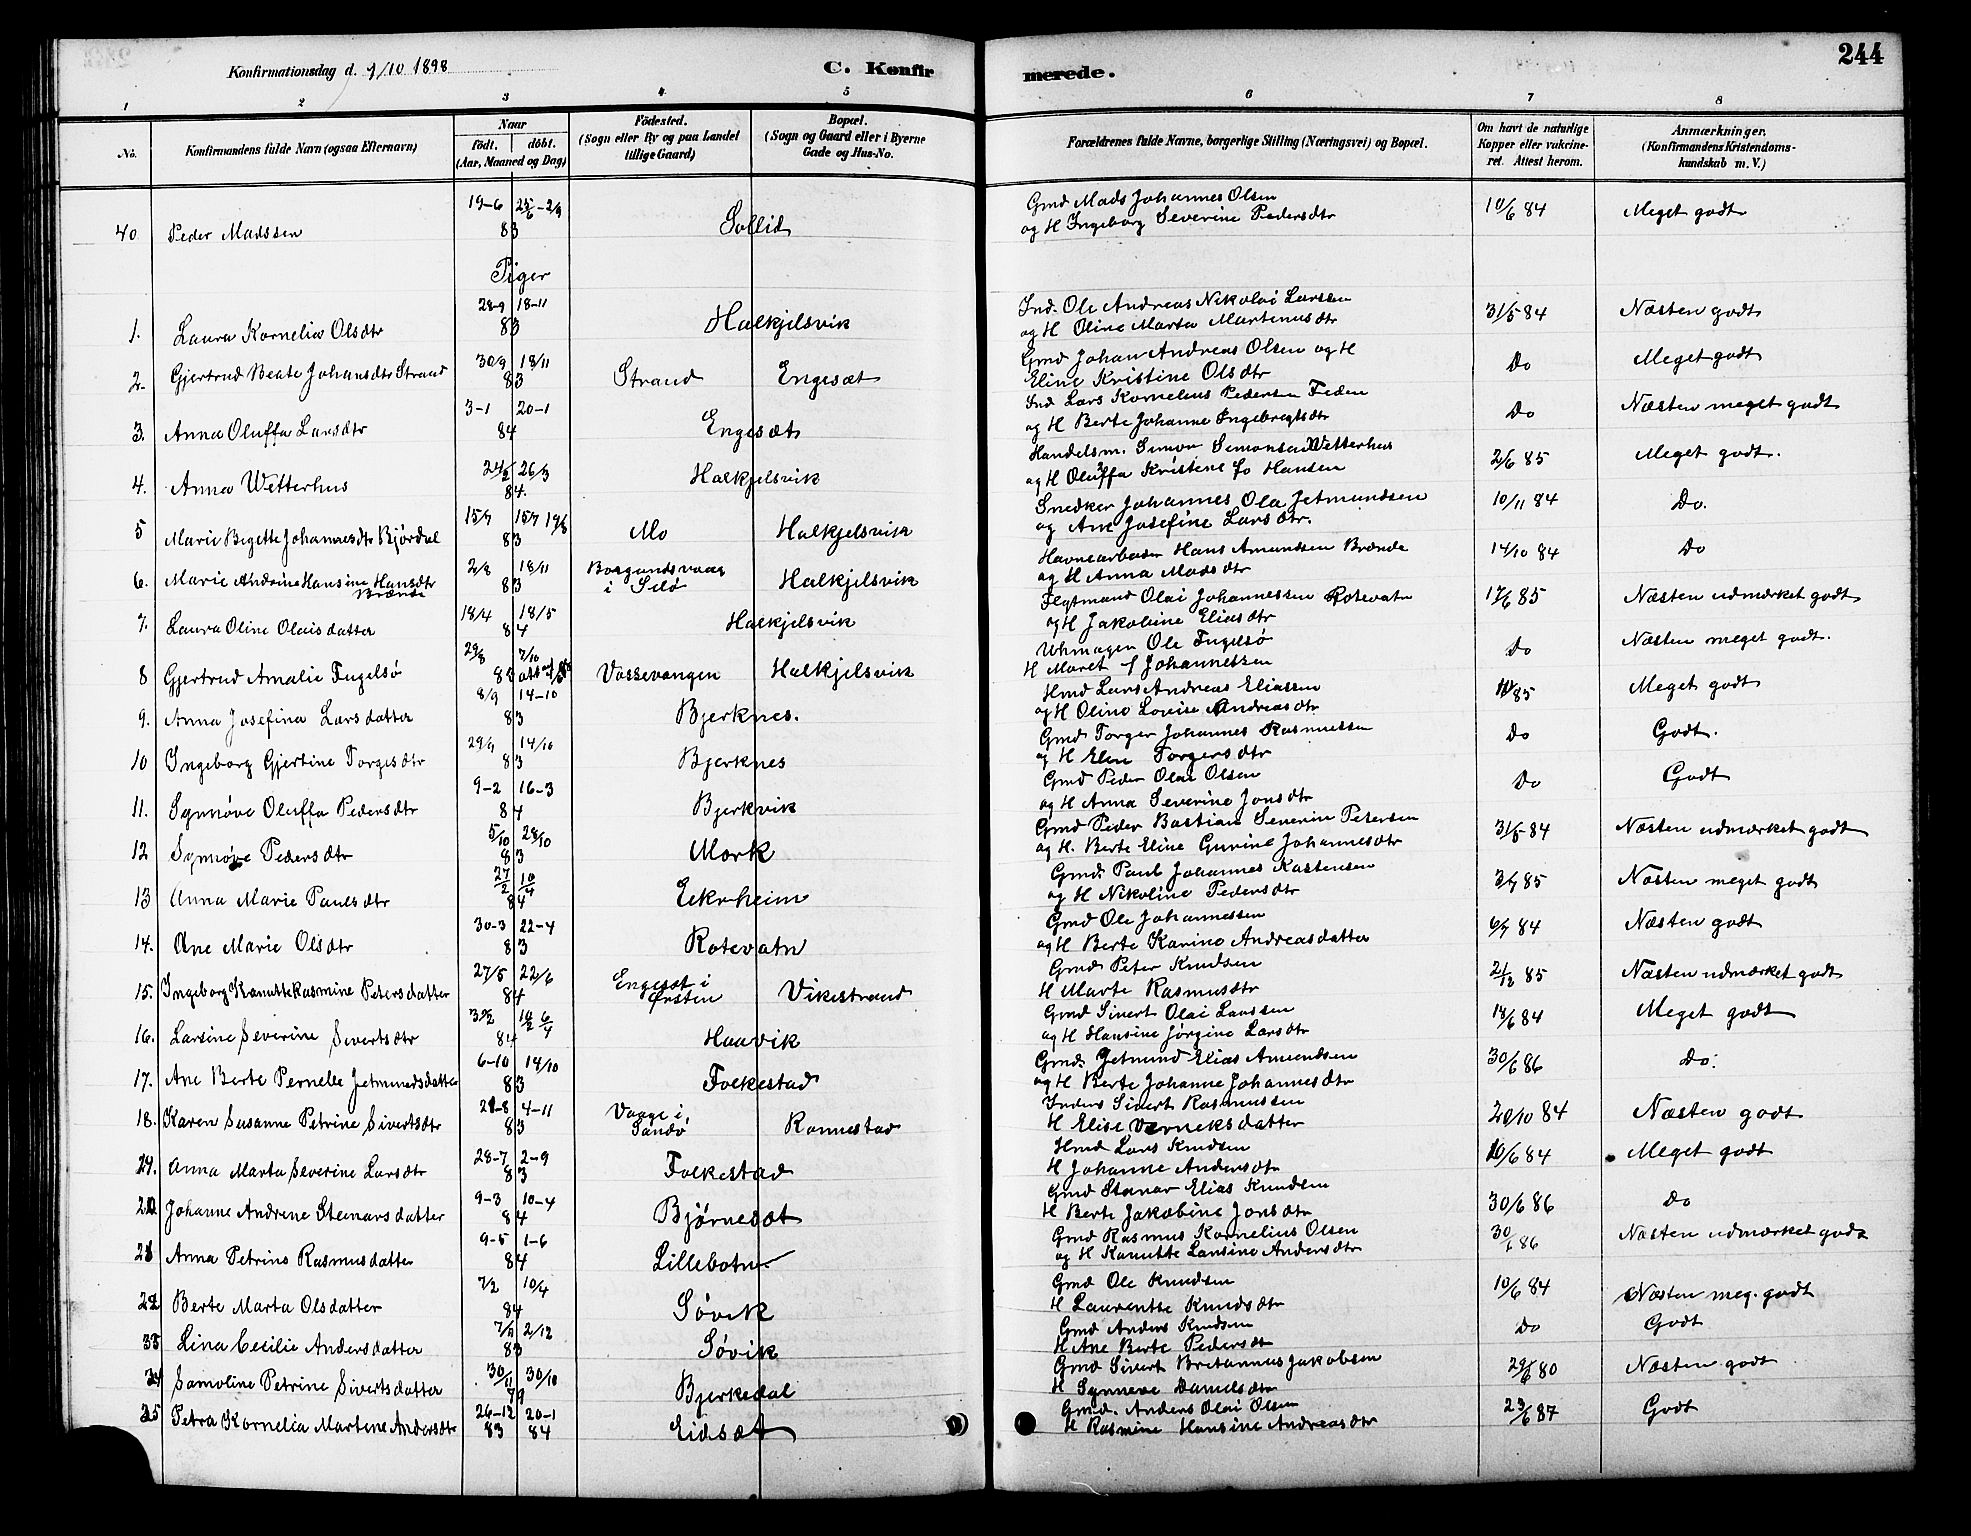 244
Konfirmationsdag d. 9/10 1898
C. Konfirmerede.
1 2 3 4 5 6 7 8
No.
Konfirmandens fulde Navn (ogsaa Efternavn)
Naar
født. døbt.
(Aar, Maaned og Dag)
Fødested.
(Sogn eller By og paa Landet
tillige Gaard)
Bopæl.
(Sogn og Gaard eller i Byerne
Gade og Hus-No.
Forældrenes fulde Navne, borgerlige Stilling (Næringsvei) og Bopæl.
Om havt de naturlige
Kopper eller vakcine-
ret. Attest herom.
Anmærkninger.
(Konfirmandens Kristendoms-
kundskab m. V.)
40 Peder Madssen 19-6 83 Sollid Gmd Mads Johannes Olsen
og H Ingeborg Severine Pedersdtr 10/6 84 Meget godt
Piger
1. Laura Kornelia Olsdtr 28-9 18-11 83 Halkjelsvik Ind. Ole Andreas Nikolai Larssen
og H Oline Marta Martinusdtr 31/5 84 Næsten godt
2. Gjertrud Beate Johansdtr Strand 30/9 18/11 83 Strand Engesæt Gmd Johan Andreas Olsen og H
Eline Kristine Olsdtr Do Meget godt
3. Anna Oluffa Larsdtr 3-1 20-1 84 Engesæt Ind Lars Kornelius Pedersen Feden
og H Berte Johanne Ingebregtsdtr Do Næsten meget godt
4. Anna Wetterhus 24/2 26/3 84. Halkjelsvik Handelsm. Simon Simonsen Wetterhus
og H Oluffa Kristine fo Hansen 2/6 85 Meget godt.
5 Marie Begette Johannesdtr Bjørdal 15/7 15/7 19/8 83 Mo Halkjelsvik Snedker Johannes Ola Jetmundsen
og Ane Josefine Larsdtr. 10/11 84 Do.
6. Marie Andrine Hansine Hansdtr
Brænde 2/8 18/11 83 Borgundsvaag
i Selø Halkjelsvik Havnearbeider Hans Amundsen Brænde
og H Anna Madsdtr 14/10 84 Do
7. Laura Oline Olaisdatter 18/4 18/5 84 Halkjelsvik Olai Johannessen Rotevatn
og H Jakobine Eliasdtr 17/6 85 Næsten udmærket godt
8 Gjertrud Amalie Fugelsø 29/8 7/10 83 Vossevangen Halkjelsvik Uhrmager Ole Fugelsø
H Maret f Johannessen Do Næsten meget godt.
9. Anna Josefina Larsdatter 8/9 14-10 83 Bjerknes. Hmd Lars Andreas Eliassen
og H Olino Lovise Andreasdtr 85 Meget godt
10 Ingeborg Gjertine Torgesdtr 29/9 14/10 83 Bjerknes Gmd Torger Johannes Rasmussen
og H Eline Torgersdtr Do Godt.
11. Synnøve Oluffa Pedersdtr 9-2 16-3 84 Bjerkvik Gmd Peder Olai Olsen
og H Anna Severine Jonsdtr Do Godt
12 Synnøve Pedersdtr 5/10 28/10 83 Mork Gmd Peder Bastian Severin Petersen
og H. Berte Eline Gurine Johannesdtr 31/5-84 Næsten udmærket godt
13 Anna Marie Paulsdtr 27/2 10/4 84 Eekrheim Gmd. Paul Johannes Kastensen
og H Nikoline Pedersdtr 3/7 85 Næsten meget godt
14. Ane Marie Olsdtr 30-3 22-4 83 Rotevatn Gmd Ole Johannessen
og H Berte Karino Andreasdatter 6/7 84 Næsten godt
15. Ingeborg Kanutte Rasmine Petersdatter 27/5 22/6 84 Engeset i
Ørsten Vikestrand Gmd Peter Knudsen
H Marte Rasmusdtr 21/12 85 Næsten udmærket godt
16. Larsine Severine Sivertsdtr 6/4 84 Haavik Gmd Sivert Olai Larssen
og H Hansine Jørgine Larsdtr 14/6 84 Meget godt
17. Ane Berte Pernelle Jetmundsdatter 6-10 14/10 83 Folkestad Gmd. Jetmund Elias Amundsen
og H Berte Johanne Johannesdtr 30/6 86 Do.
18. Karen Susanne Petrine Sivertsdtr 21-8 4-11 83 Vaage i
Sandø Ronnestad Inders Sivert Rasmussen
H Elise Verneksdatter 20/10 84 Næsten godt
Anna Marta Severine Larsdtr 28-7 2-9 83 Folkestad Hmd Lars Knudsen
H Johanne Andersdtr 10/6 84 Meget godt
20 Johanne Andrene Steinarsdatter 9-3 10-4 84 Bjørneset Gmd Stenar Elias Knudsen
H Berte Jakobine Jonsdtr 30/6 86 Do
21 Anna Petrino Rasmusdatter 9-5 1-6 84 Lillebotn Gmd Rasmus Kornelius Olsen
og H Kanutte Larsine Andersdtr 30/6 86 Næsten udmærket godt
22 Berte Marta Olsdatter 7/2 10/4 84 Søvik Gmd Ole Knudsen
H Laurentse Knudsdtr 10/6 84 Næsten meg. godt
Lina Cecilie Andersdatter 2/12 83 Søvik Gmd Anders Knudsen
H Ane Berte Pedersdtr Do Godt
Samoline Petrine Sivertsdatter 30/11 30/10 79 Bjerkedal Gmd Sivert Britannus Jakobsen
H Synneve Danielsdtr 29/6 80 Næsten godt
25 Petra Kornelia Martene Andersdtr 26-12 83 20-1 84 Eidsæt Gmd. Anders Olai Olsen
H Rasmine Hansine Andreasdtr 23/6 87 Godt